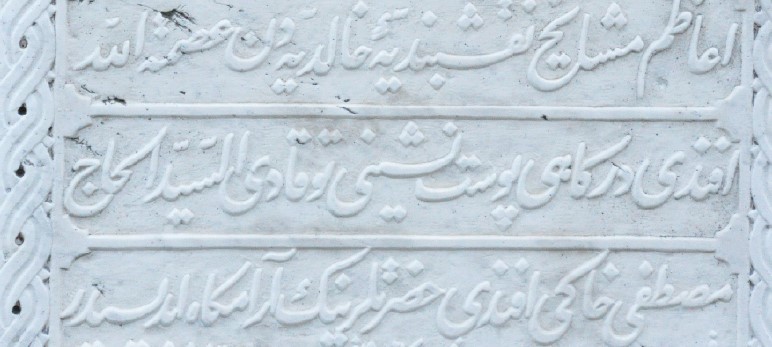 اعاظم مشایخ نقشبندیهٔ خالدیه دن عصمة الله
افندی درکاهی پوست نشینی توقادی السید الحاج
مصطفی خاکی افندی حضرتلرینك آرامکاه ابدیسیدر